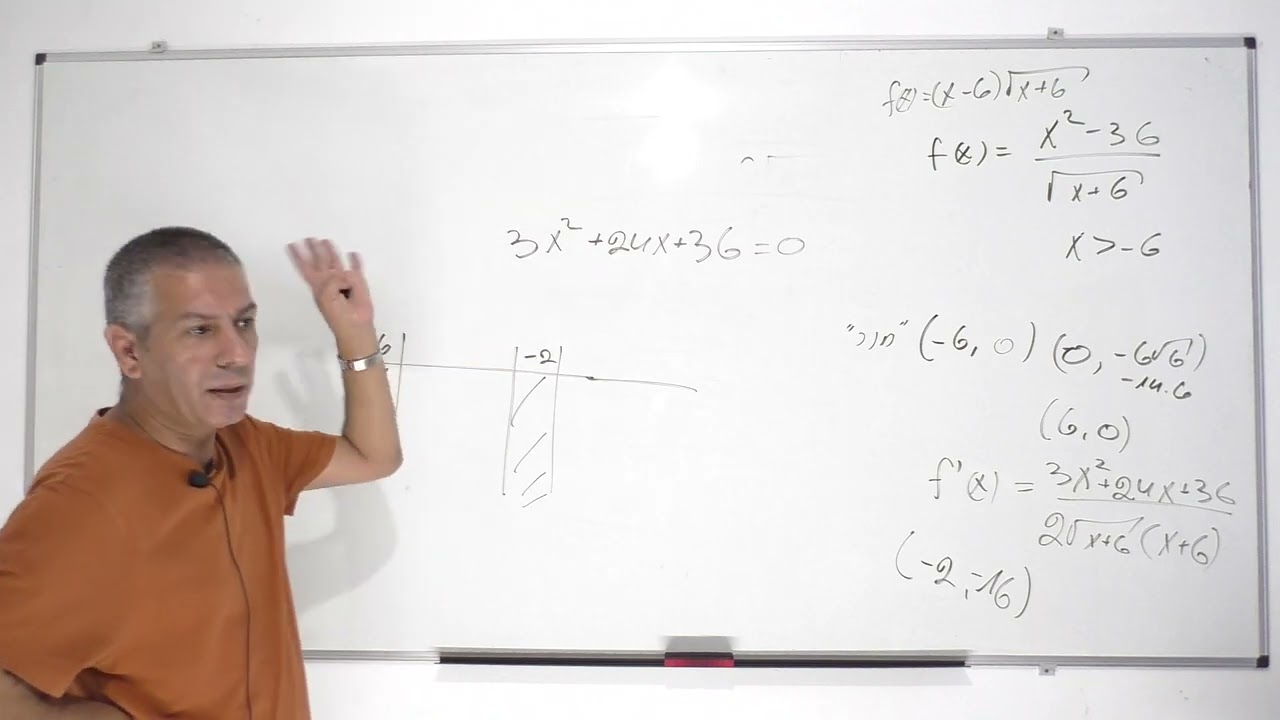 f(x)=(x-6)√(x+6)
f(x) = (x²-36)/√(x+6)
x>-6
3x²+24x+36=0
6 -2
"חור" (-6, 0) (0, -6√6)
-14.6
(6,0)
f'(x) = (3x²+24x+36)/(2√(x+6)(x+6))
(-2,-16)